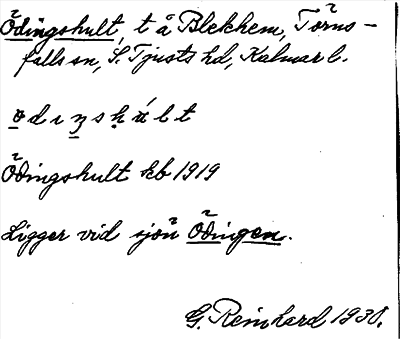 Ödingshult, t å Blekhem, Törns-
falls sn, S. Tjusts hd, Kalmar l.
ödiŋshúlt
Ödingshult kb 1919
Ligger vid sjön Ödingen.
G. Reinhard 1938.